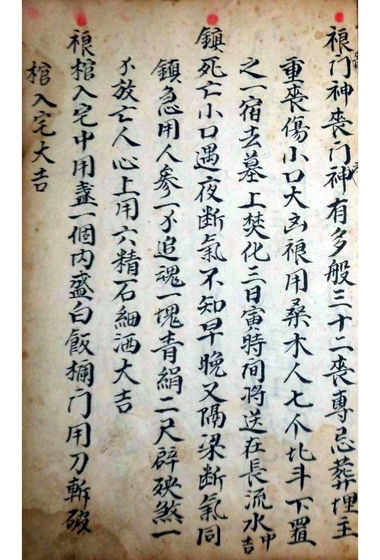 禓门神喪门神有多般三十二喪專忌葬埋主
重喪傷小口大凶禓用桑木人七个北斗下置
之一宿去墓上焚化三日寅時间将送在長流水中吉
鎮死亡小口遇夜断氣不知早晚又隔梁断氣同
鎮急用人参一个追魂一塊青絹二尺辟殃煞一
个放亡人心上用六精石細洒大吉
禓棺入宅中用盏一個内盛白飯 门用刀斬破
棺入宅大吉